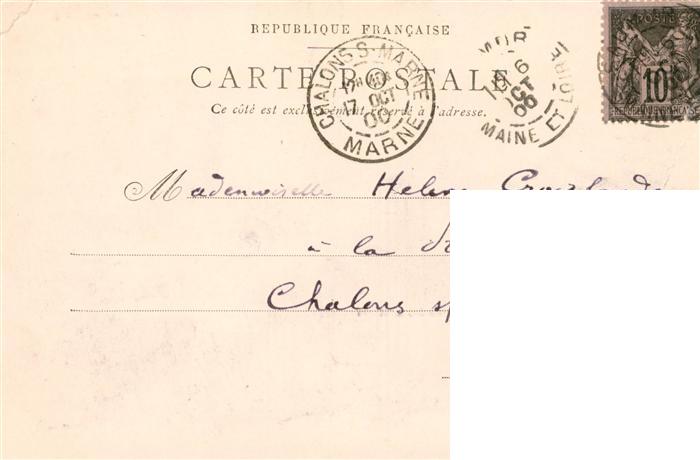 REPUBLIQUE FRANÇAISE
CARTE POSTALE
Ce côté est exclusivement réservé à l'adresse.
CHALONS S. MARNE
17 OCT
00
MARNE
16
OCT
00
MAINE ET LOIRE
POSTE
10
REPUBLIQUE FRANÇAISE
Mademoiselle Helene
à la
Chalons s/